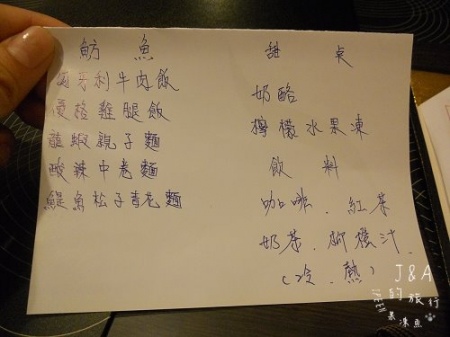 魴魚
匈牙利牛肉飯
優格雞腿飯
龍蝦親子麵
酸辣中卷麵
鯷魚松子青花麵
甜桌
奶酪
檸檬水果凍
飲料
咖啡、紅茶
奶茶、柳橙汁
(冷、熱)
J&A
的旅行